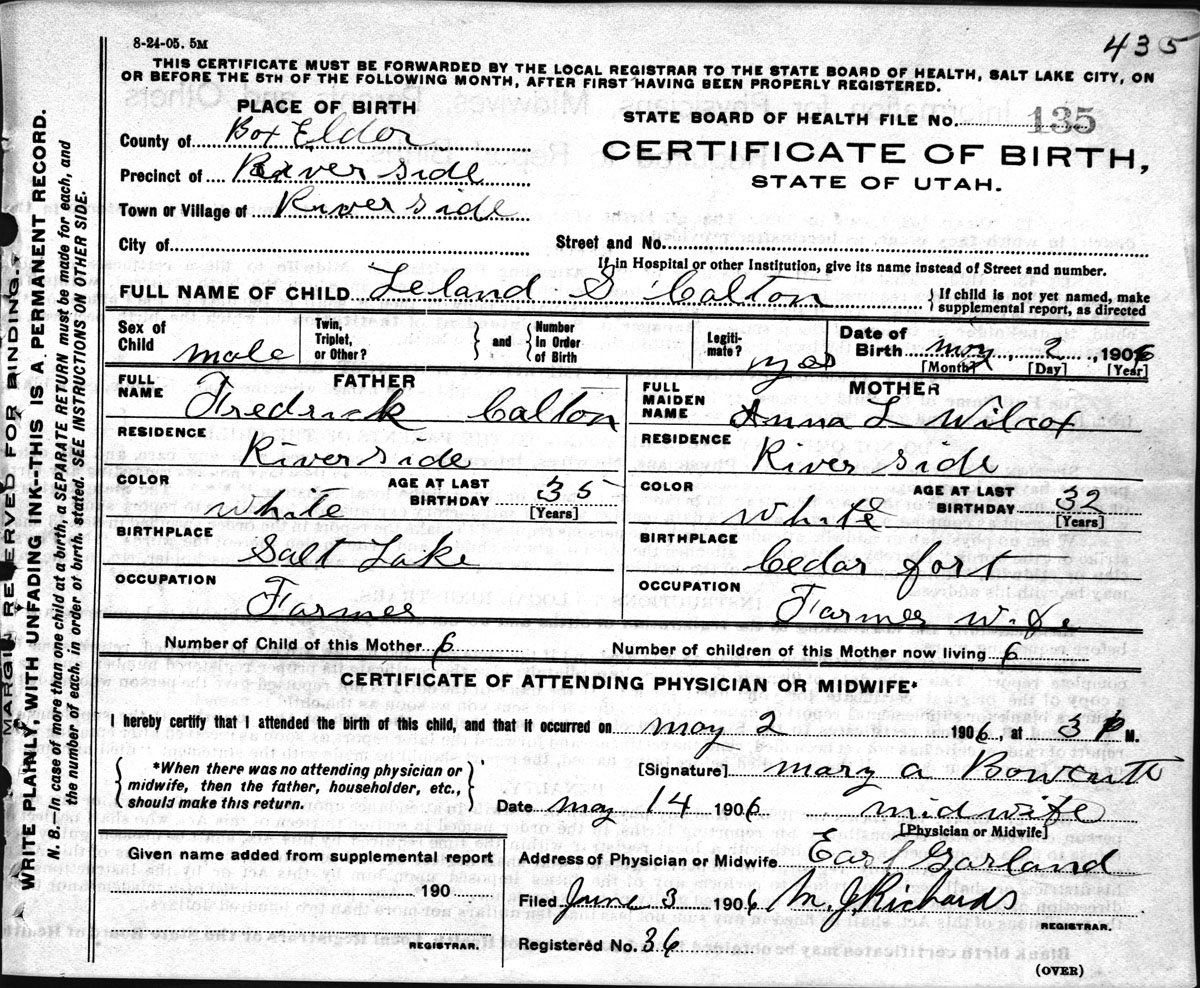 8-24-05. 5M
435
THIS CERTIFICATE MUST BE FORWARDED BY THE LOCAL REGISTRAR TO THE STATE BOARD OF HEALTH, SALT LAKE CITY, ON
OR BEFORE THE 5TH OF THE FOLLOWING MONTH, AFTER FIRST HAVING BEEN PROPERLY REGISTERED.
PLACE OF BIRTH
STATE BOARD OF HEALTH FILE No. 135
County of Box Elder
CERTIFICATE OF BIRTH,
STATE OF UTAH.
Precinct of Riverside
Town or Village of Riverside
City of
Street and No.
If in Hospital or other Institution, give its name instead of Street and number.
FULL NAME OF CHILD Leland S Calton
If child is not yet named, make
supplemental report, as directed
Sex of Child male
Twin, Triplet, or Other?
and
Number In Order of Birth
Legiti-mate? yes
Date of Birth May 2, 1906
[Month] [Day] [Year]
FATHER
FULL NAME Fredrick Calton
RESIDENCE Riverside
COLOR White
AGE AT LAST BIRTHDAY 35 [Years]
BIRTHPLACE Salt Lake
OCCUPATION Farmer
MOTHER
FULL MAIDEN NAME Anna L Wilcox
RESIDENCE River side
COLOR White
AGE AT LAST BIRTHDAY 32 [Years]
BIRTHPLACE Cedar fort
OCCUPATION Farmer wife
Number of Child of this Mother 6
Number of children of this Mother now living 6
CERTIFICATE OF ATTENDING PHYSICIAN OR MIDWIFE*
I hereby certify that I attended the birth of this child, and that it occurred on may 2 1906, at 3 P M.
*When there was no attending physician or
midwife, then the father, householder, etc.,
should make this return.
[Signature] mary a Bowcutt
Date may 14 1906
midwife
[Physician or Midwife]
Given name added from supplemental report
190
REGISTRAR.
Address of Physician or Midwife East Garland
Filed June 3 1906 M. J. Richards
REGISTRAR.
Registered No. 36
(OVER)
MARGIN RESERVED FOR BINDING.
WRITE PLAINLY, WITH UNFADING INK--THIS IS A PERMANENT RECORD.
N. B.—In case of more than one child at a birth, a SEPARATE RETURN must be made for each, and
the number of each, in order of birth, stated. SEE INSTRUCTIONS ON OTHER SIDE.